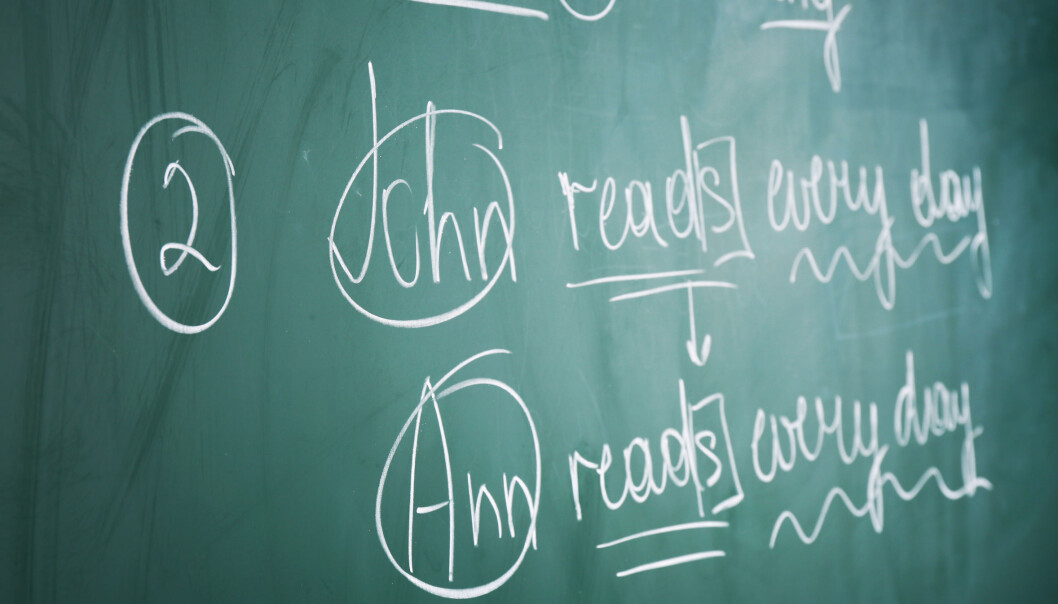 ② John reads every day
Ann reads every day